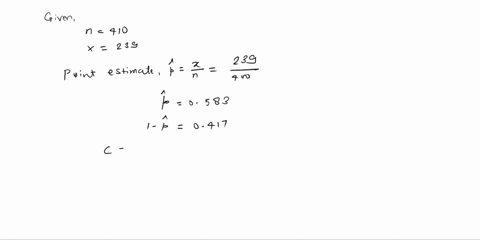 Given,
n = 410
x = 239
Point estimate, p̂ = x/n = 239/400
p̂ = 0.583
1-p̂ = 0.417
C -